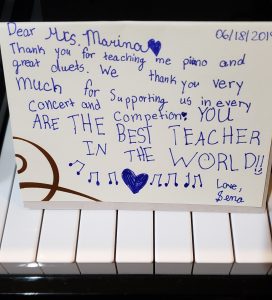 06/18/2019
Dear Mrs. Marina
Thank you for teaching me piano and
great duets. We thank you very
much for supporting us in every
concert and competion. YOU
ARE THE BEST TEACHER
IN THE WORLD!!
Love,
Sena